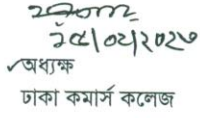 ২৫/০২/২০২৩
অধ্যক্ষ
ঢাকা কমার্স কলেজ